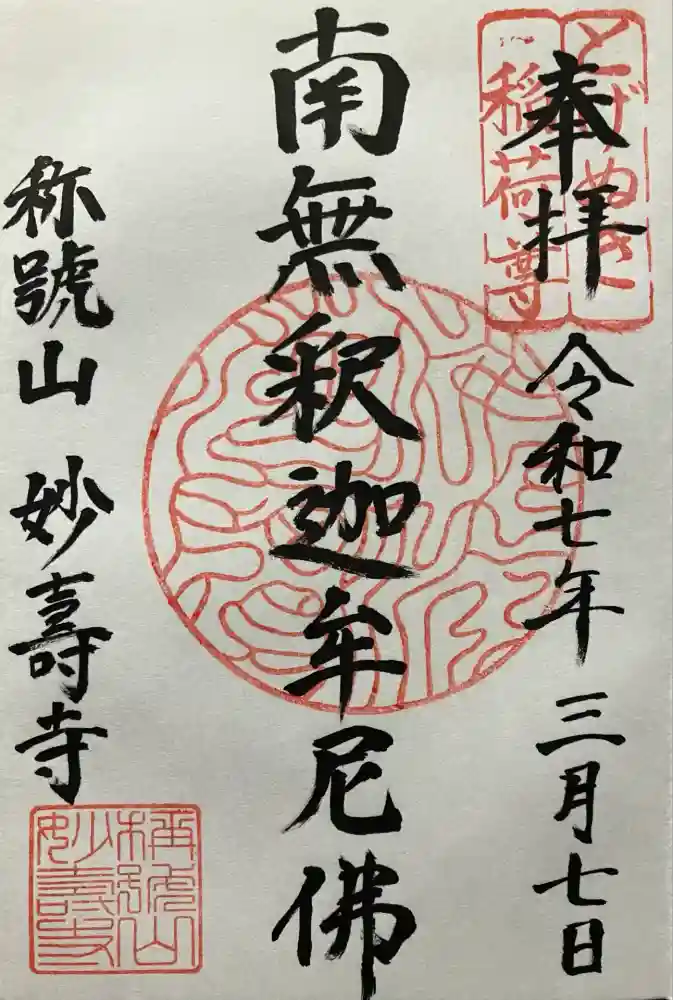 奉拝
令和七年三月七日
とげぬき
稲荷尊
南無釈迦牟尼佛
称號山 妙壽寺
稱號山
妙壽寺